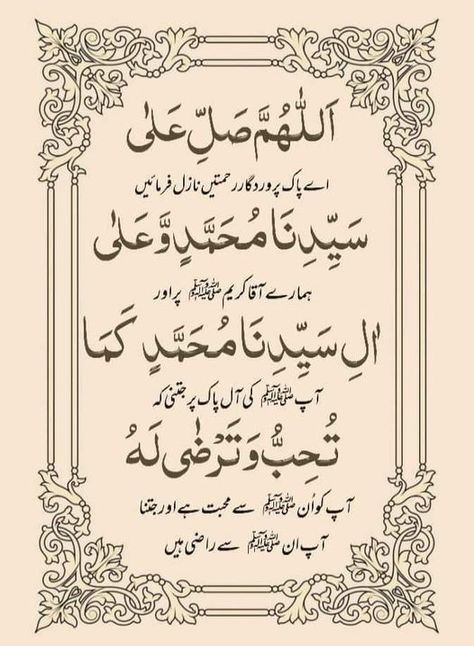 اَللّٰهُمَّ صَلِّ عَلٰی
اے پاک پروردگار رحمتیں نازل فرمائیں
سَيِّدِنَا مُحَمَّدٍ وَّعَلٰی
ہمارے آقا کریم ﷺ پر اور
اٰلِ سَيِّدِنَا مُحَمَّدٍ كَمَا
آپ ﷺ کی آل پاک پر جتنی کہ
تُحِبُّ وَتَرْضٰی لَهُ
آپ کو اُن ﷺ سے محبت ہے اور جتنا
آپ ان ﷺ سے راضی ہیں